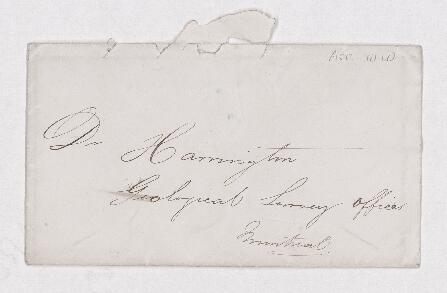 Dr Harrington
Geological Survey Offices
Montreal